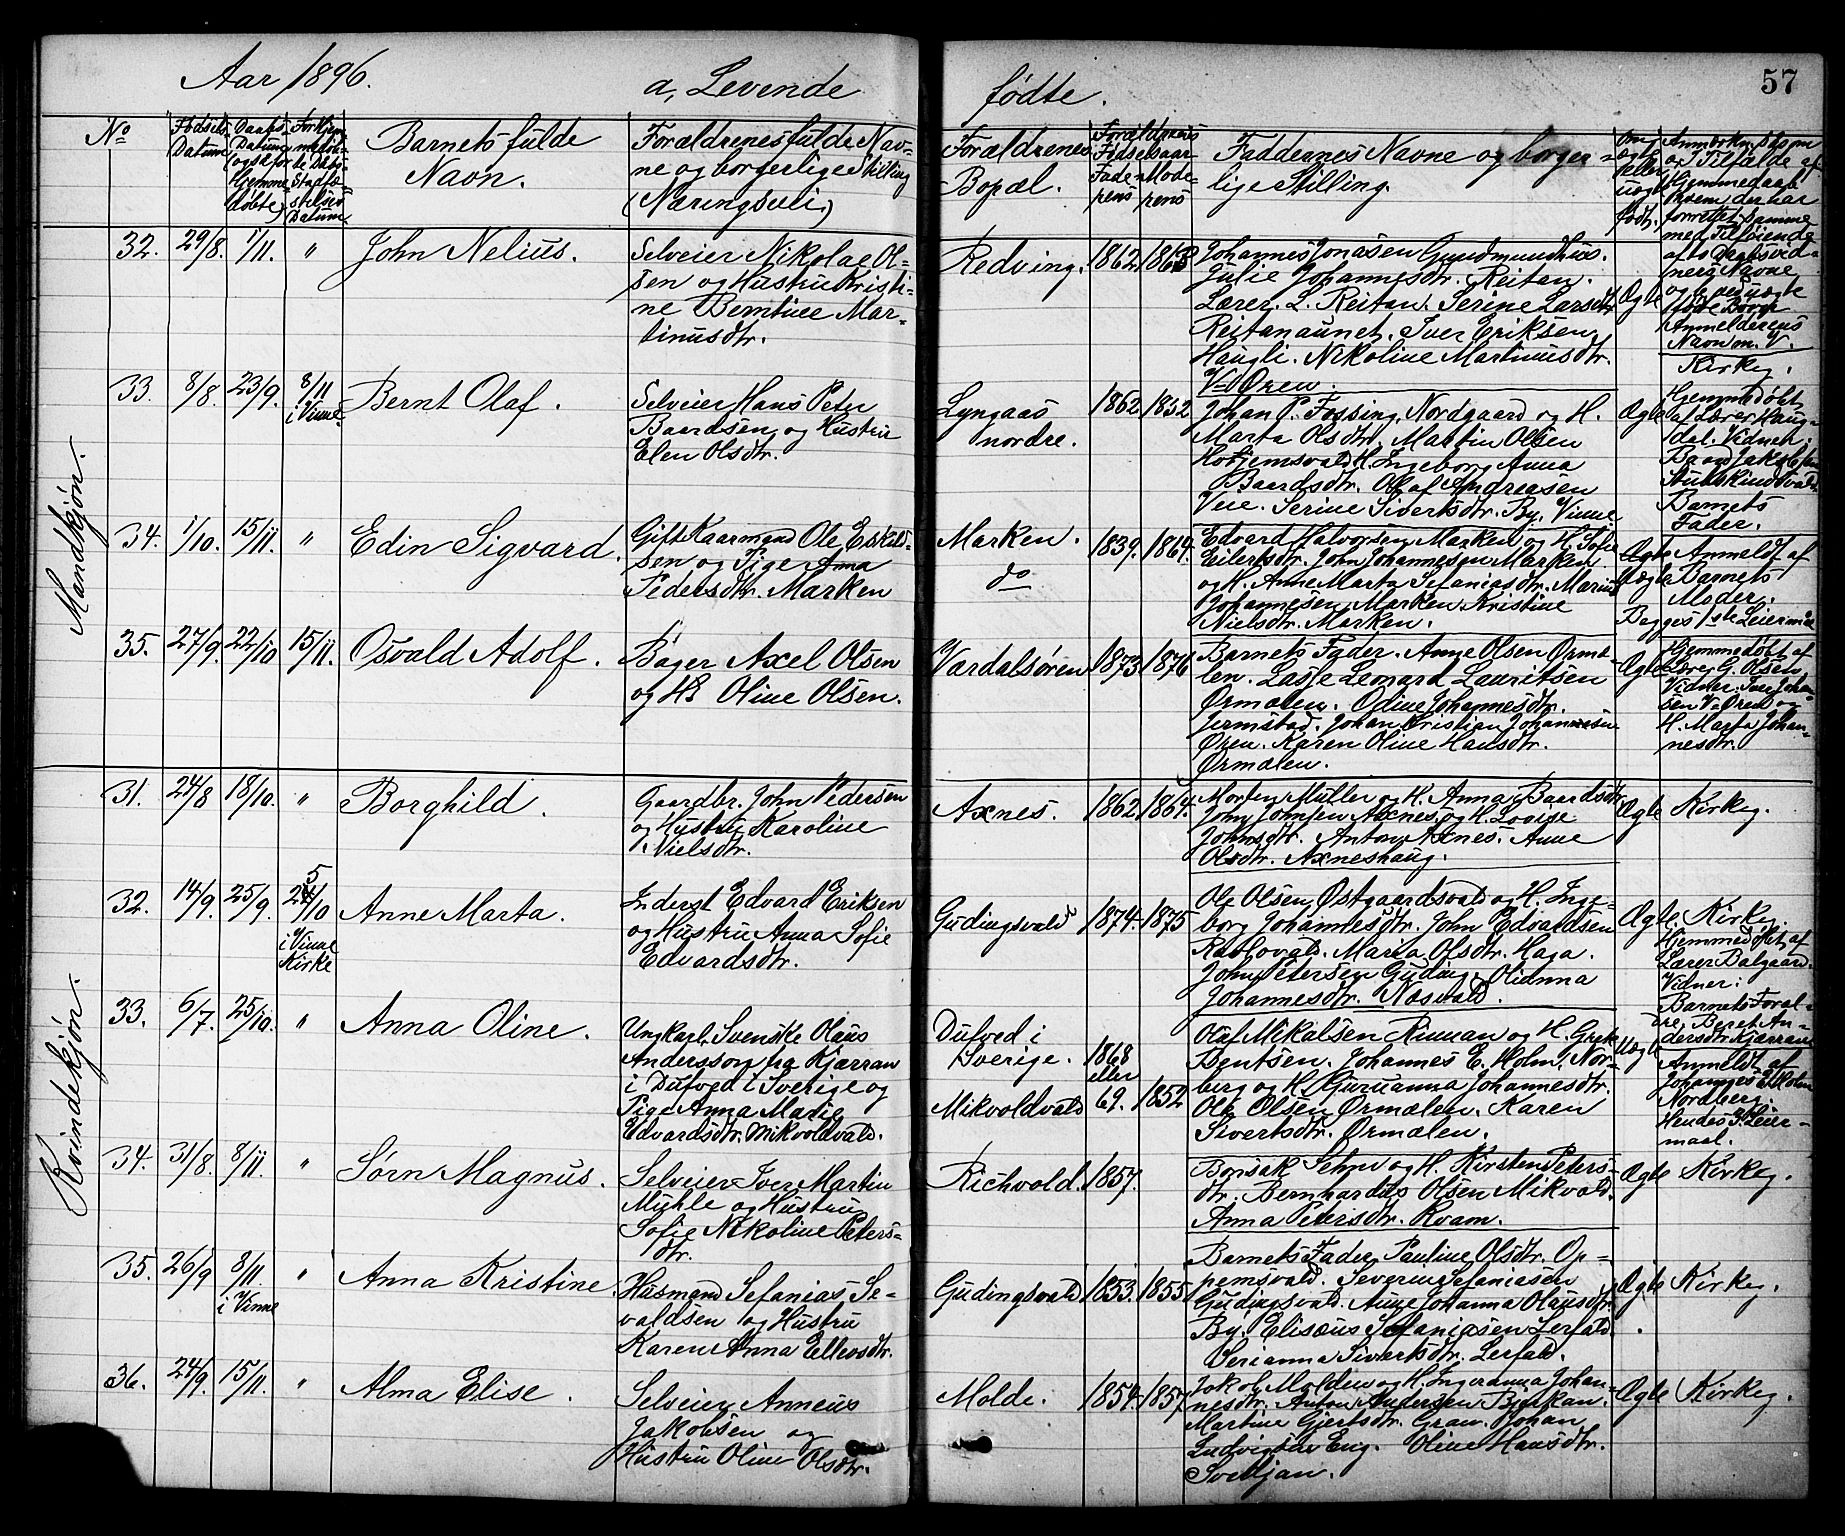 Aar 1896. a, Levende fødte. 57
No
Fødsels Datum
Daabs Datum (ogsaa for hjemme døbte)
Barnets fulde Navn.
Forældrenes fulde Navne og borgerlige Stilling (Næringsvei)
Forældrenes Bopæl.
Forældrenes Fødselsaar
Faderens
Moderens
Faddernes Navne og borgerlige Stilling.
Mandkjøn.
32. 29/8. 1/11. " John Nelius.
Selveier Nikolae Ol-
sen og Hustru Kristi-
ne Berntine Mar-
tinusdtr.
Redving. 1862 1863
Johannes Jonasen Gundmundhus.
Julie Johannesdtr. Reitan.
Lærer L. Reitan. Serine Larsdtr
Reitanaunet. Iver Eriksen
Haugli. Nikoline Martinusdtr.
V=Øren.
Ægte
Kirkeg.
33. 8/8. 23/9. 8/11 i Vinne. Bernt Olaf.
Selveier Hans Peter
Baardsen og Hustru
Elen Olsdtr.
Lyngaas
nordre.
1862 1852
Johan P. Fossing. Nordgaard og H.
Marta Olsdtr. Martin Olsen
Hofjemsvald. H. Ingeborg Anna
Baardsdtr. Olaf Andreasen
Veie. Serine Sivertsdtr. By. Vinne.
Ægte
Hjemmedøbt
af Lærer Haug-
dal. Vidner:
Baard Jakobsen
Barnets
Fader.
34. 1/10. 15/11. " Edin Sigvard.
Gift Kaarmand Ole Eskild-
sen og Pige Anna
Pedersdtr. Marken
Marken.
do
1839. 1864.
Edvard Halvorsen Marken og H. Sofie
Eilertsdtr. John Johannesen Marken
og H. Anne Marta Sefaniasdtr. Marius
Johannesen Marken Kristine
Nielsdtr. Marken.
Anmeldt af
Barnets
Moder.
Begges 1ste Leiermaal
35. 27/9. 22/10 15/11. Osvald Adolf.
Bager Axel Olsen
og H. Oline Olsen.
Værdalsøren 1873 1876
Barnets Fader. Anne Olsen Ørme-
len. Lasse Leonard Lauritsen
Ørmælen. Odine Johannesdtr.
Jermstad. Johan Kristian Johannesen
Øren. Karen Oline Hansdtr.
Ørmælen.
Ægte
Hjemmedøbt af
Lærer G. Olsen
Vidner. Iver Johan-
sen V=Øren og
H. Marta Johan-
nesdtr.
Kvindekjøn.
31. 24/8 18/10. " Borghild.
Gaardbr. John Pedersen
og Hustru Karoline
Nielsdtr.
Axnes. 1862 1864.
Morten Müller og H. Anna Baardsdtr.
John Johnsen Axnes og H. Lovise
Johnsdtr. Anton Axnes. Anne
Olsdtr. Axneshaug.
Ægte Kirkeg.
32. 14/9. 25/9. 25/10 i Vinne Kirke Anne Marta.
Inderst Edvard Eriksen
og Hustru Anna Sofie
Edvardsdtr.
Gudingsvald 1874. 1875
Ole Olsen Østgaardsvald og H. Inge-
borg Johannesdtr. John Edvardsen
Marta Olsdtr. Haga.
John Petersen Guding. Olianna
Johannesdtr. Næsvald.
Ægte. Kirkeg.
Hjemmedøbt af
Lærer Dalgaard.
Vidner:
Barnets Foræl-
dre. Beret An-
dersdtr. Kjærran
33. 6/7. 25/10. " Anna Oline.
Ungkarl, Svenske Olaus
Andersson fra Kjærran
i Dufved i Sverige og
Pige Anna Marie
Edvardsdtr. Mikvoldvald.
Dufved i
Sverige.
Mikvoldvald
1868
eller
69. 1852
Olaf Mikalsen Rinnan og H. Grete
Bentsen. Johannes E. Holm. Nor-
berg og H. Guruanna Johannesdtr.
Ole Olsen Ørmælen. Karen
Sivertsdtr. Ørmælen.
Uægte
Anmeldt af
Johannes E. Holm
Nordberg.
Hendes 3. Leier-
maal.
34. 31/8. 8/11. " Sørn Magnus.
Selveier Iver Martin
Mühle og Hustru
Sofie Nikoline Peters-
dtr.
Richvold. 1857.
og H. Kirsten Peters-
dtr. Bernhardus Olsen Mikvald.
Anna Petersdtr. Kvam.
Ægte Kirkeg.
35. 26/9 8/11. i Vinne " Anna Kristine.
Husmand Sefanias Se-
valdsen og Hustru
Karen Anna Ellevsdtr.
Gudingsvald 1853. 1855
Barnets Fader. Pauline Olsdtr. Op-
pemsvald. Severin Sefaniasen
Gudingsvald. Anne Johanna Olausdtr.
By. Elisæus Sefaniasen Lerfald.
Serianna Sivertsdtr. Lerfald.
Ægte Kirkeg.
36. 24/9. 15/11. " Alma Elise.
Selveier Anneus
Jakobsen og
Hustru Oline Olsdtr.
Molde. 1854. 1857
Jakob Molden og H. Ingeranna Johan-
nesdtr. Anton Andersen Bjørkan.
Martine Gjertsdtr. Gran. Johan
Ludvigsen Eng. Oline Hansdtr.
Svedjan.
Ægte Kirkeg.